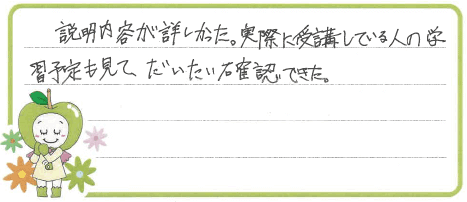 説明内容が詳しかった。実際に受講している人の学
習予定も見て、だいたい確認できた。